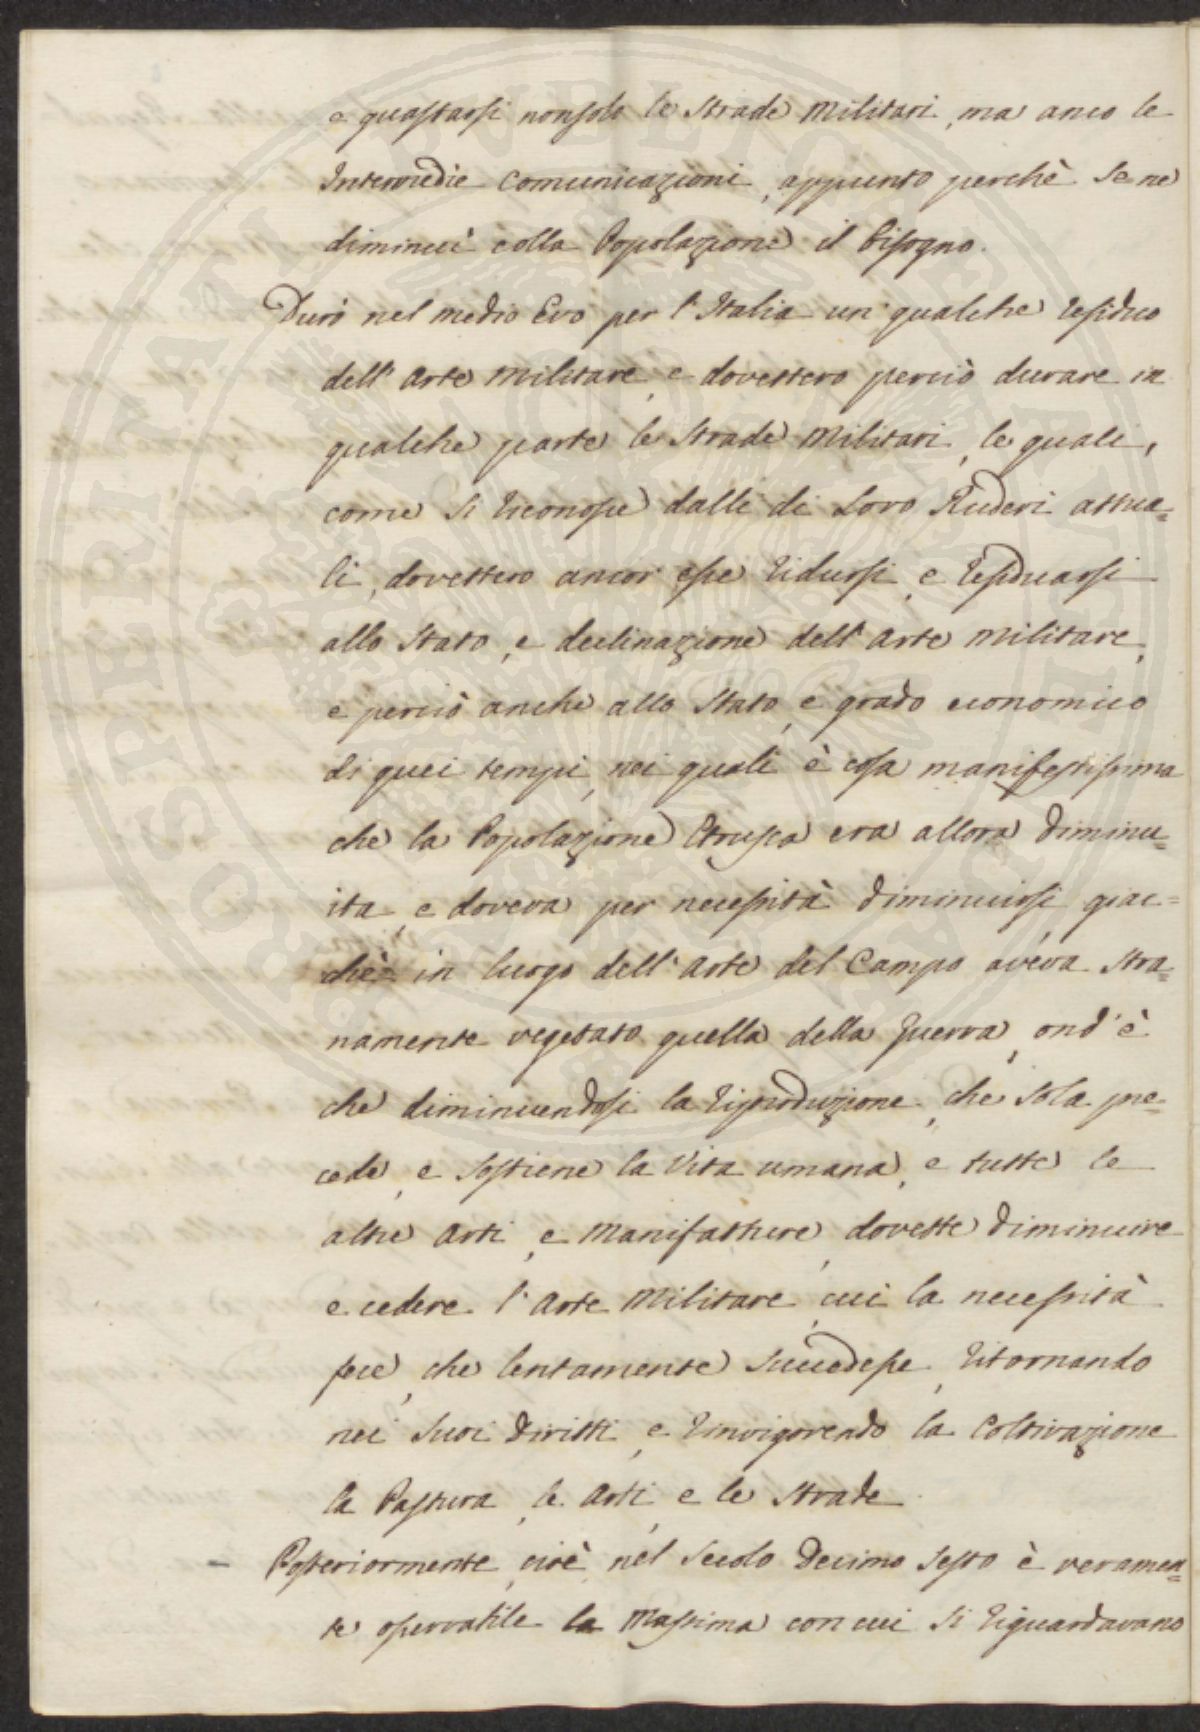 e guastarsi nonsolo le Strade Militari, ma anco le
Intermedie comunicazioni, appunto perchè se ne
diminuì colla Popolazione il bisogno.
Durò nel medio Evo per l'Italia un qualche residuo
dell'Arte Militare, e dovettero perciò durare in
qualche parte le Strade Militari, le quali,
come si riconosce dalli di Loro Ruderi attua=
li, dovettero ancor esse ridursi, e residuarsi
allo Stato, e declinazione dell'Arte Militare,
e perciò anche allo Stato, e grado economico
di quei tempi, nei quali è cosa manifestissima
che la Popolazione Etrusca era allora diminu=
ita, e doveva per necessità diminuirsi giac=
chè in luogo dell'Arte del Campo aveva stra=
namente vegetato quella della Guerra, ond'è
che diminuendosi la riproduzione, che sola pre=
cede, e sostiene la Vita umana, e tutte le
altre Arti, e Manifatture, dovette diminuire
e cedere l'Arte Militare, cui la necessità
fece, che lentamente succedesse, ritornando
nei suoi diritti, e rinvigorendo la Coltivazione
la Pastura, le Arti, e le Strade.
– Posteriormente, cioè, nel Secolo Decimo Sesto è veramen=
te osservabile la Massima con cui si riguardavano
PROSPERITATI PVBLICAE AVGENDAE